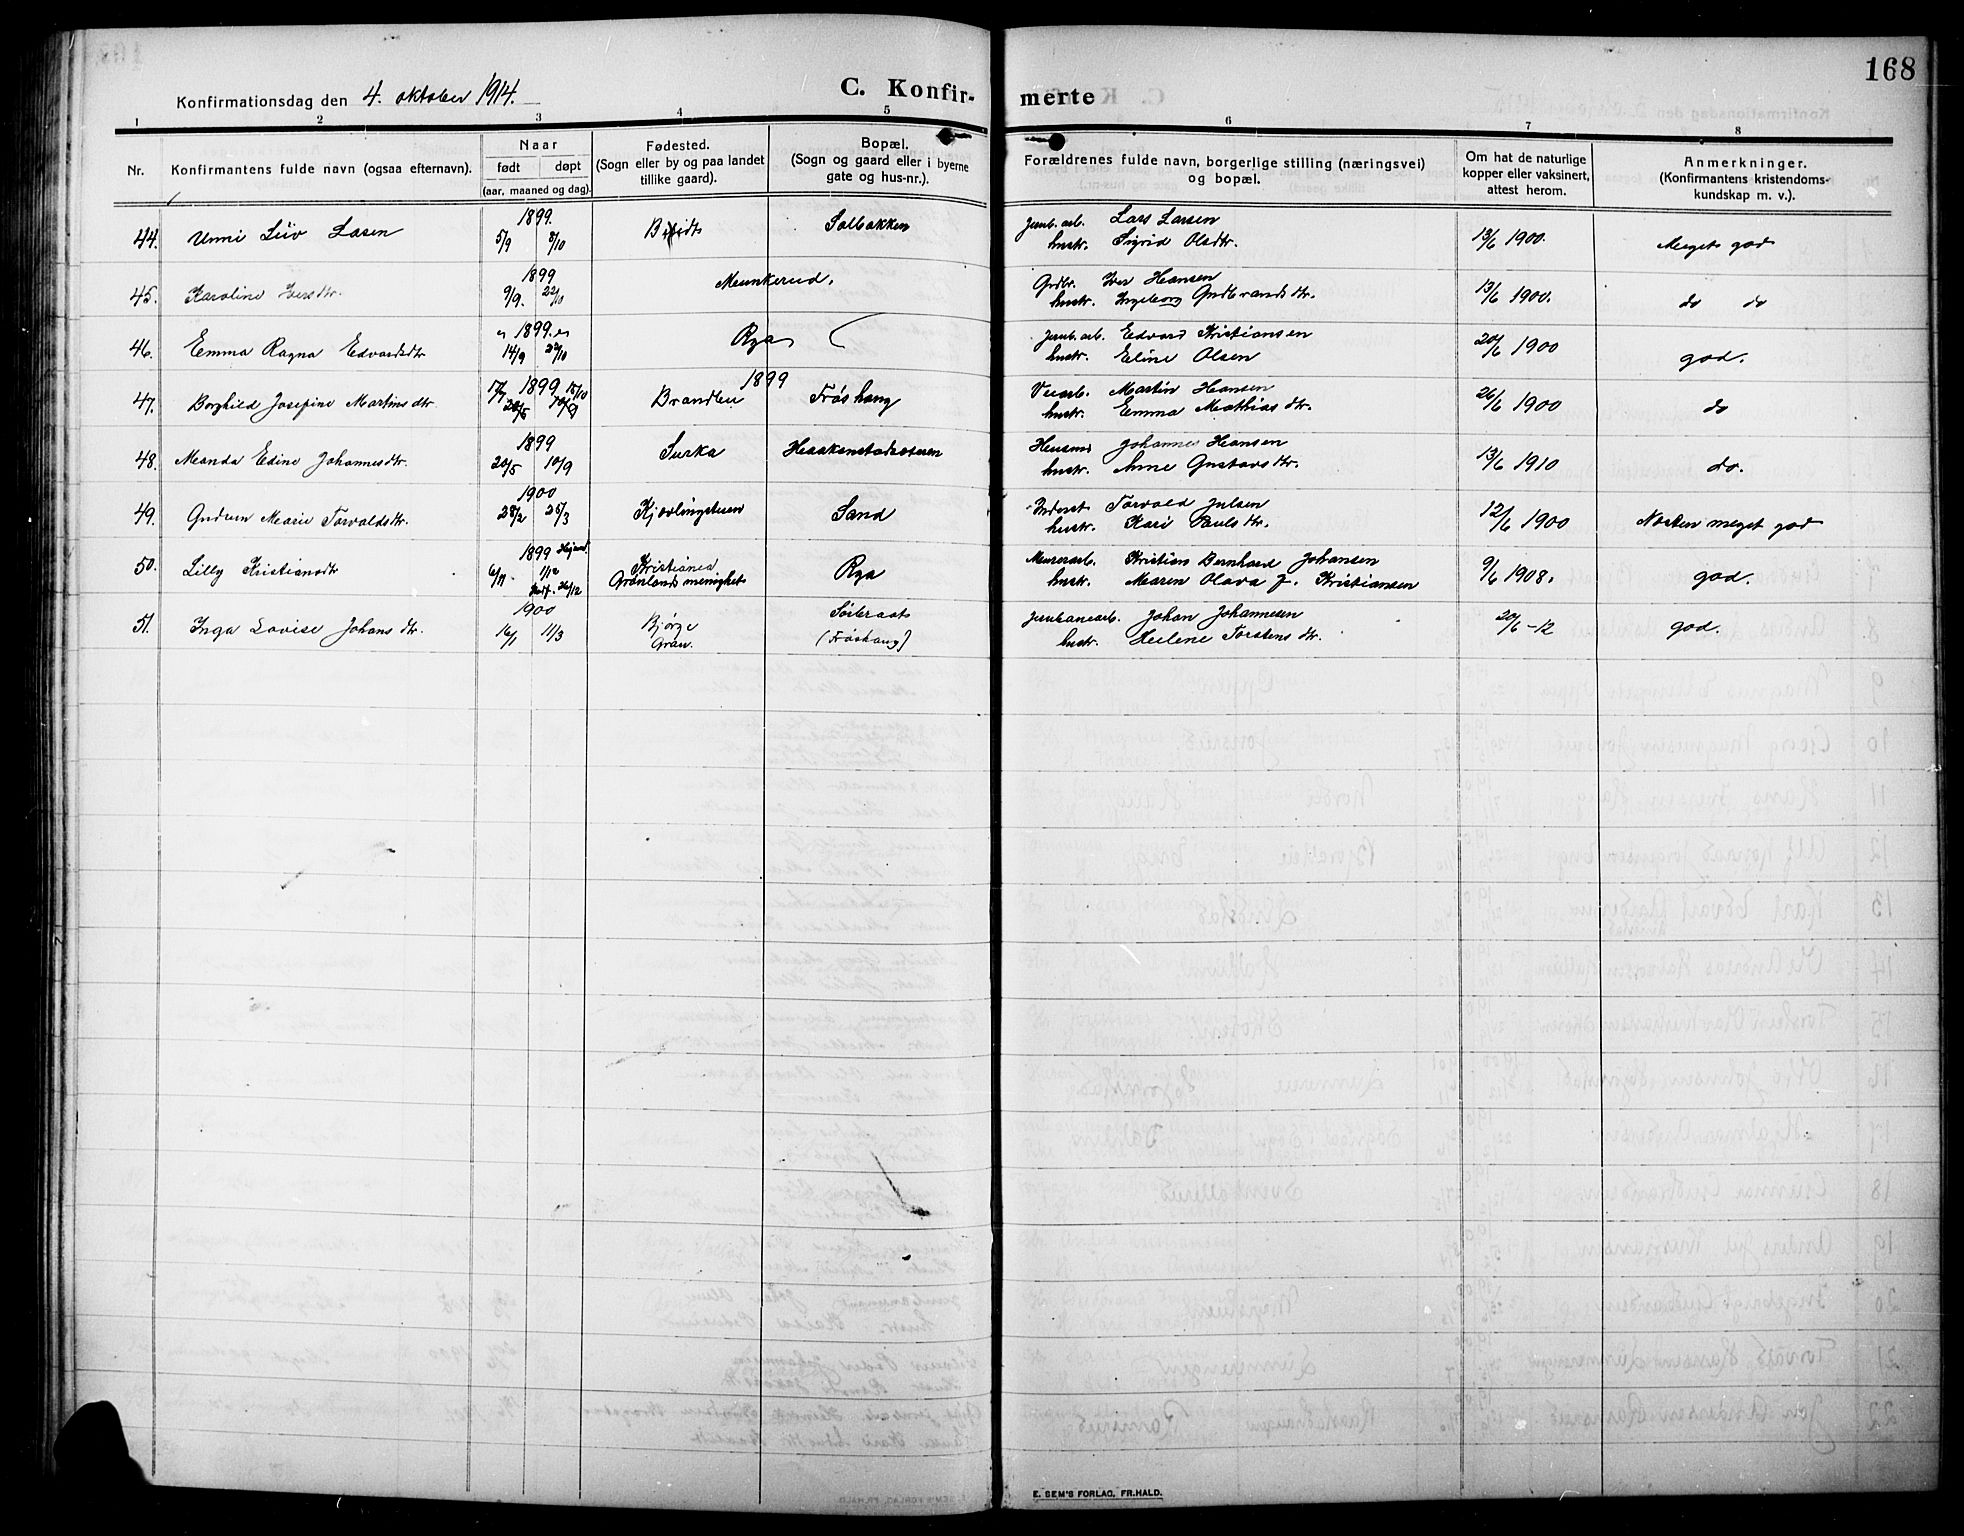 168
Konfirmationsdag den 4. oktober 1914.
C. Konfir- merte
1 2 3 4 5 6 7 8
Nr.
Konfirmantens fulde navn (ogsaa efternavn).
Naar
født døpt
(aar, maaned og dag).
Fødested.
(Sogn eller by og paa landet
tillike gaard).
Bopæl.
(Sogn og gaard eller i byerne
gate og hus-nr.).
Forældrenes fulde navn, borgerlige stilling (næringsvei)
og bopæl.
Om hat de naturlige
kopper eller vaksinert,
attest herom.
Anmerkninger.
(Konfirmantens kristendoms-
kundskap m. v.).
44. Unni Liv Lasen 1899 5/9 8/10 Solbakken
Jernb. arb. Lars Larsen
hustr. Sigrid Olsdtr.
13/6 1900. Meget god
45. Karoline Iversdtr. 1899 9/9. 22/10 Munkerud.
Grdbr. Iver Hansen
hustr. Ingeborg Gudbrandsdtr.
13/6 1900. do do
46. Emma Ragna Edvardsdtr 1899 14/9 22/10 Rya
Jernb. arb. Edvard Kristiansen
hustr. Eline Olsen
20/6 1900 god.
47. Borghild Josefine Martinsdtr. 17/7 1899 15/10 20/5 10/9 Brandbu 1899 Frøshaug
Veiarb. Martin Hansen
hustr. Emma Mathiasdtr.
26/6 1900 do
48. Manda Edine Johannesdtr. 1899 20/5 10/9 Surka Haakenstadsteien
Husmd Johannes Hansen
hustr. Anne Gustavsdtr.
13/6 1910 do.
49. Gudrun Marie Torvaldsdtr. 1900 28/2 25/3 Kjørlingsteien Sand
Inderst Torvald Julsen
hustr. Kari Paulsdtr.
12/6 1900 Næsten meget god
50. Lilly Kristiansdtr 1899 6/11 1/12 26/12
Kristiania
Grønlands menighet
Rya
Murerarb. Kristian Bernhard Johansen
hustr. Maren Olava J. Kristiansen
9/6 1908. god.
51. Inga Lovise Johansdtr. 1900 16/1 11/3
Bjørge
Gran.
(Frøshaug)
Jernbanearb. Johan Johannesen
hustr. Helene Torstensdtr.
20/6 -12 god.
E. SEM'S FORLAG, FR.HALD.